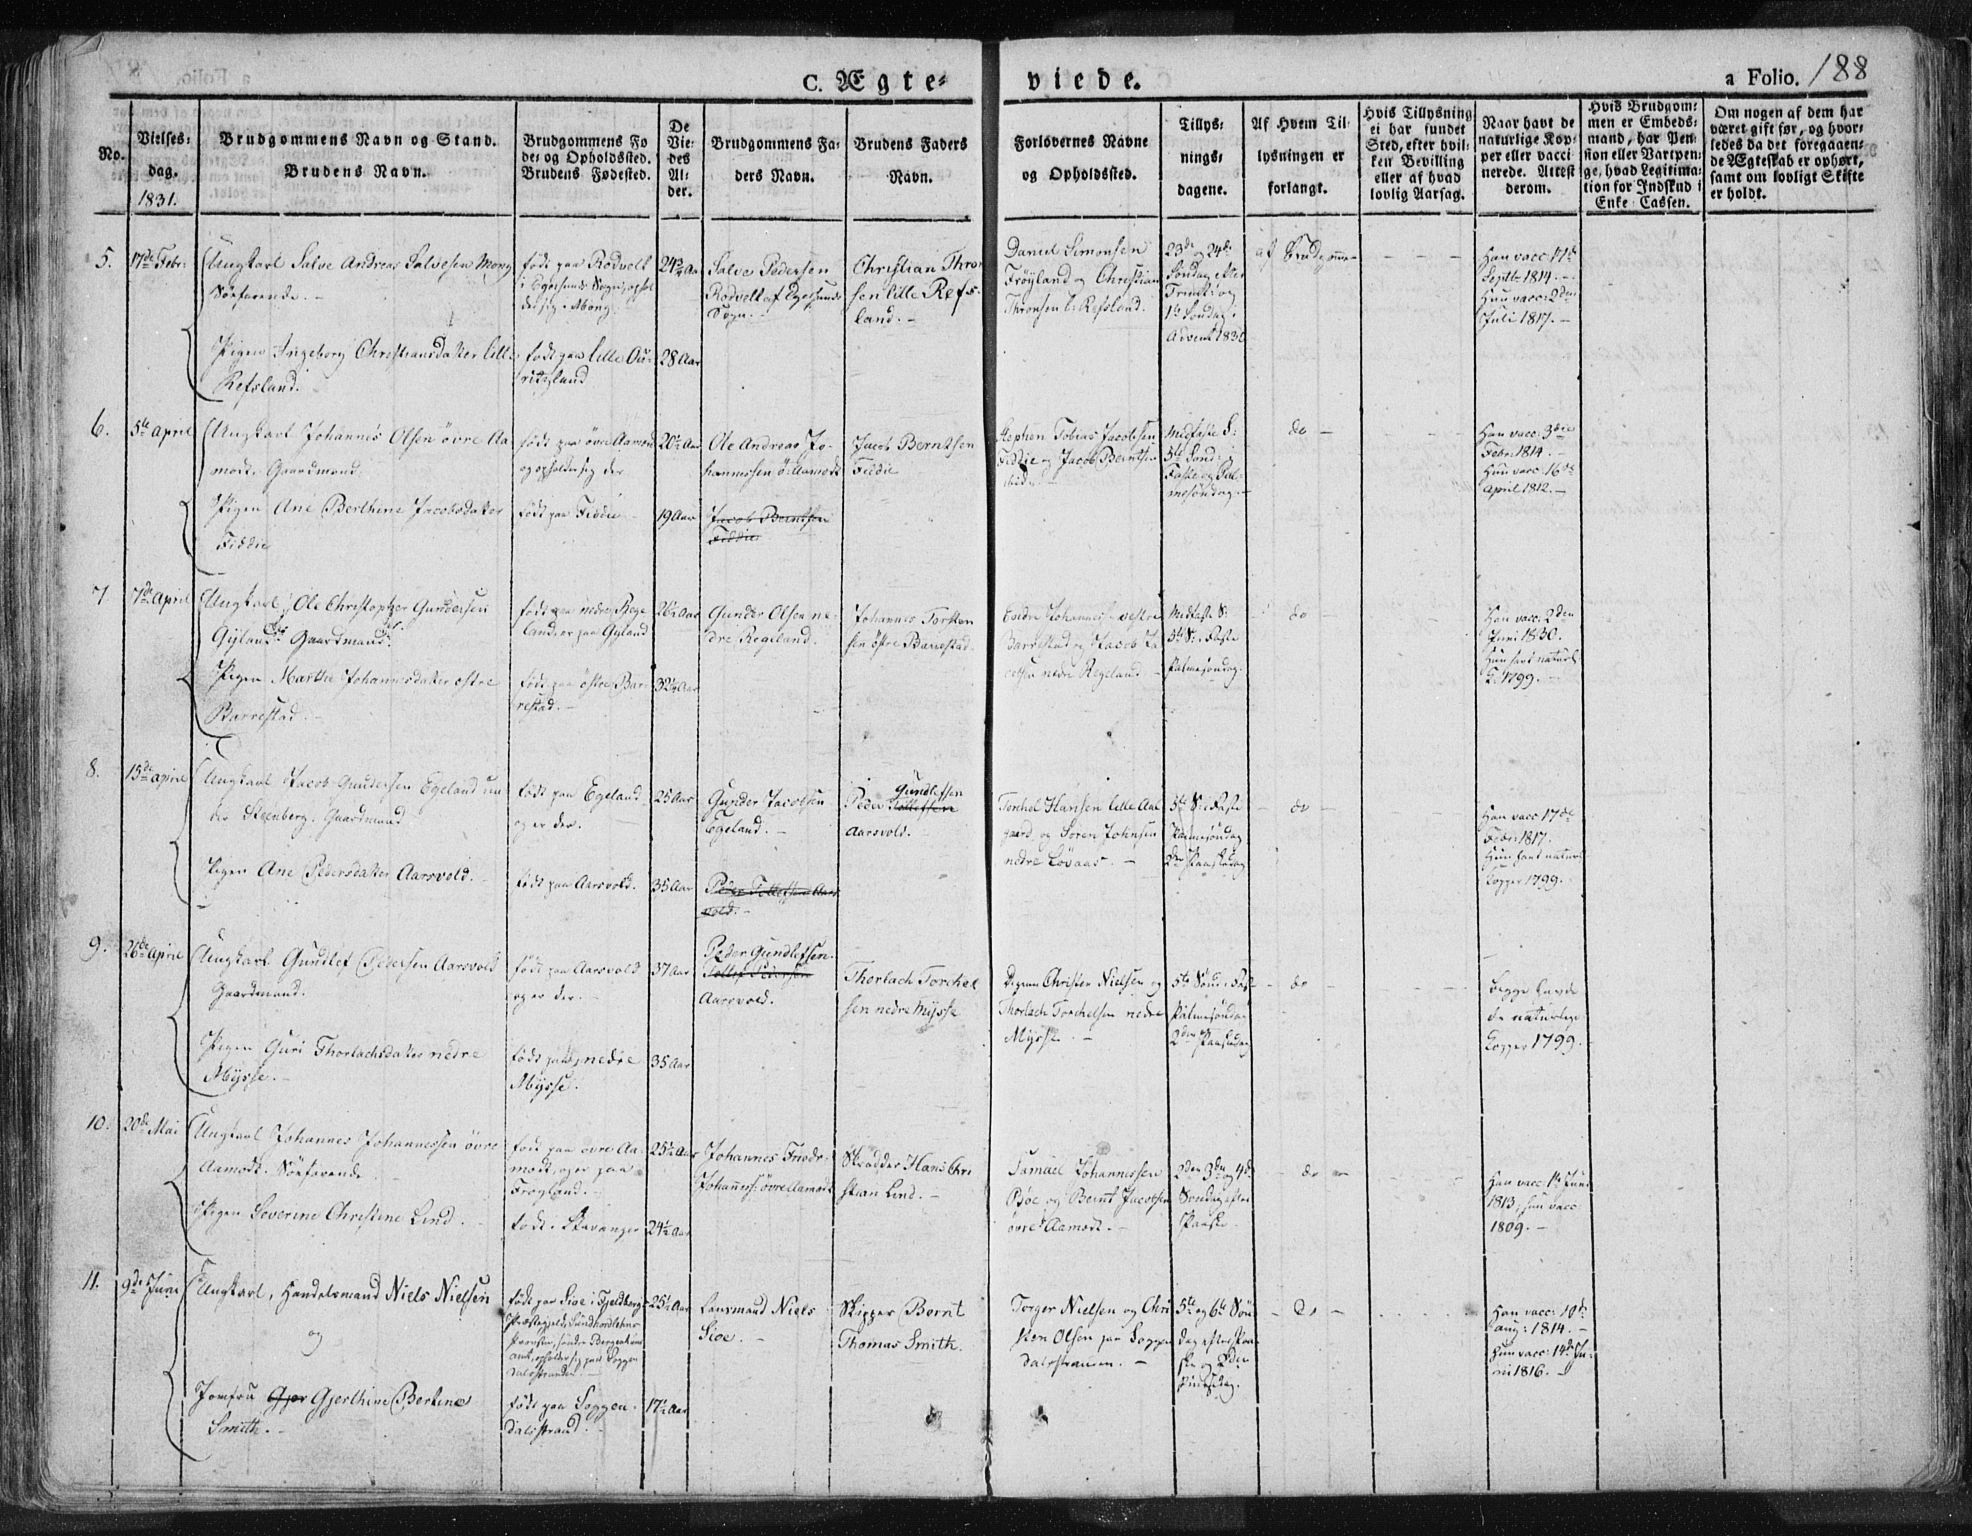 C. Ægte-
viede.
a Folio. 188
No.
Vielses-
dag.
1831.
Brudgommens Navn og Stand.
Brudens Navn.
Brudgommens Fø
de- og Opholdssted.
Brudens Fødested.
De
Vie-
des
Al-
der.
Brudgommens Fa-
ders Navn.
Brudens Faders
Navn.
Forlovernes Navne
og Opholdssted.
Tillys-
nings-
dagene.
Af Hvem Til-
lysningen er
forlangt.
Hvis Tillysning
ei har fundet
Sted, efter hvil-
ken Bevilling
eller af hvad
lovlig Aarsag.
Naar havt de
naturlige Kop-
per eller vacci-
nerede. Attest
derom.
Hvis Brudgom-
men er Embeds-
mand, har Pen-
sion eller Vartpen-
ge, hvad Legitima-
tion for Indskud i
Enke-Cassen.
Om nogen af dem har
været gift før, og hvor-
ledes da det foregaaen-
de Ægteskab er ophørt,
samt om lovligt Skifte
er holdt.
5.
17de Febr:
Ungkarl Salve Andreas Salvesen Mong
Søefarende. -
Pigen Ingeborg Christiansdatter lille
Refsland.
født paa Rodvelt
i Egersunds Sogn, ophol
der sig i Mong.
født paa lille
24 3/4 Aar
28 Aar
Salve Pedersen
Rodvelt af Egersunds
Sogn. -
Christian Thron-
sen lille Refs-
land. -
Daniel Simonsen
Frøyland og Christian
Thronsen l: Refsland.
23de og 24de
Søndag efter
Trinit: og
1te Søndag i
Advent 1830
af Brudgomme
Han vacc: 11te
Septbr 1814. -
Hun vacc: 2den
Juli 1817. -
6.
5te April
Ungkarl Johannes Olsen øvre Aa-
modt. Gaardmand.
Pigen Ane Berthine Jacobsdatter
Fiddie
født paa øvre Aamodt
og opholder sig der
født paa Fiddie
20 1/2 Aar
19 Aar
Ole Andreas Jo-
hannessen ø: Aamodt
Jacob Berntsen
Fiddie
Jacob Berntsen
Fiddie
Stephen Tobias Jacobsen
Fiddie og Jacob Berntsen
Midfaste S:
5te Sønd: i
Faste og Pal-
mesøndag.
do -
Han vacc: 3die
Febr: 1814. -
Hun vacc: 16de
April 1812. -
7
7de April
Ungkarl Ole Christopher Gundersen
Gyland. Gaardmand.
Pigen Marthe Johannesdatter østre
Barrestad. -
født paa nedre Rege
land, er paa Gyland
født paa østre Bar-
restad. -
26 1/2 Aar
32 1/2 Aar
Gunder Olsen ne-
dre Regeland.
Johannes Torkel
sen østre Barrestad.
Endre Johannes: vestre
Barrestad og Jacob Ja
cobsen nedre Regeland -
Midfaste S:
5te S: i Faste
Palmesøndag.
do
Han vacc: 2den
Juni 1830.
Hun havt naturl:
K: 1799. -
8.
15de April
Ungkarl Jacob Gundersen Egeland un-
der Steenberg. Gaardmand
Pigen Ane Pedersdatter Aarsvold. -
født paa Egeland
og er der.
født paa Aarsvold.
25 Aar
35 Aar
Gunder Jacobsen
Egeland. -
Peder Tollefsen Aars
vold. -
Gundlefsen
Peder Tollefsen
Aarsvold. -
Torchel Hansen lille Aal
gaard og Søren Johnsen
nedre Løvaas. -
5te S: i Faste
Palmesøndag
2den Paaskedag
do
Han vacc: 17de
Febr: 1817.
Hun havt naturl:
Kopper 1799.
9.
26de April
Ungkarl Gundlef Pedersen Aarsvold
Gaardmand.
Pigen Guri Thorlachsdatter nedre
Mysse. -
født paa Aarsvold
og er der. -
født paa nedre
Mysse.
37 Aar
35 Aar
Peder Gundlefsen
Tollef Pedersen
Aarsvold.
Thorlach Torchel
sen nedre Mysse
Degnen Christen Nielsen og
Thorlach Torchelsen nedre
Mysse. -
5te Sønd: i Faste
Palmesøndag
2den Paaskedag
do
Begge havde
de naturlige
Kopper 1799.
10.
20de Mai
Ungkarl Johannes Johannessen øvre
Aamodt. Søefarende
Pigen Severine Christine Lind. -
født paa øvre Aa-
modt, og er paa
Frøyland. -
født i Stavanger
25 1/2 Aar
24 1/2 Aar
Johannes Friedr:
Johanness: øvre Aamodt
Skrædder Hans Chri
stian Lind. -
Samuel Johannessen
Bøe og Bernt Jacobsen
øvre Aamodt. -
2den 3die og 4de
Søndag efter
Paaske. -
do -
Han vacc: 1te Juni
1813, hun vacc:
1809. -
11.
9de Juni
Ungkarl, Handelsmand Niels Nielsen
og
Jomfru Gjer Gjerthine Bertine
Smith. -
født paa Sioe i Fjeldbergs
Præstegjeld, Søndhordlehns
Provstie, søndre Bergenhuus
Amt, opholder sig paa Soggen
dalsstranden.
født paa Soggen-
dalsstrand. -
25 1/2 Aar
17 1/2 Aar
Lensmand Niels
Sioe. -
Skipper Bernt
Thomas Smith.
Torger Nielsen og Chri
sten Olsen paa Soggen
dalsstranden. -
5te og 6te Søn-
dag efter Paa-
ske og 2den
Pintsedag.
Do -
Han vacc: 10de
Aug: 1814. -
Hun vacc: 14de Ju-
ni 1816. -